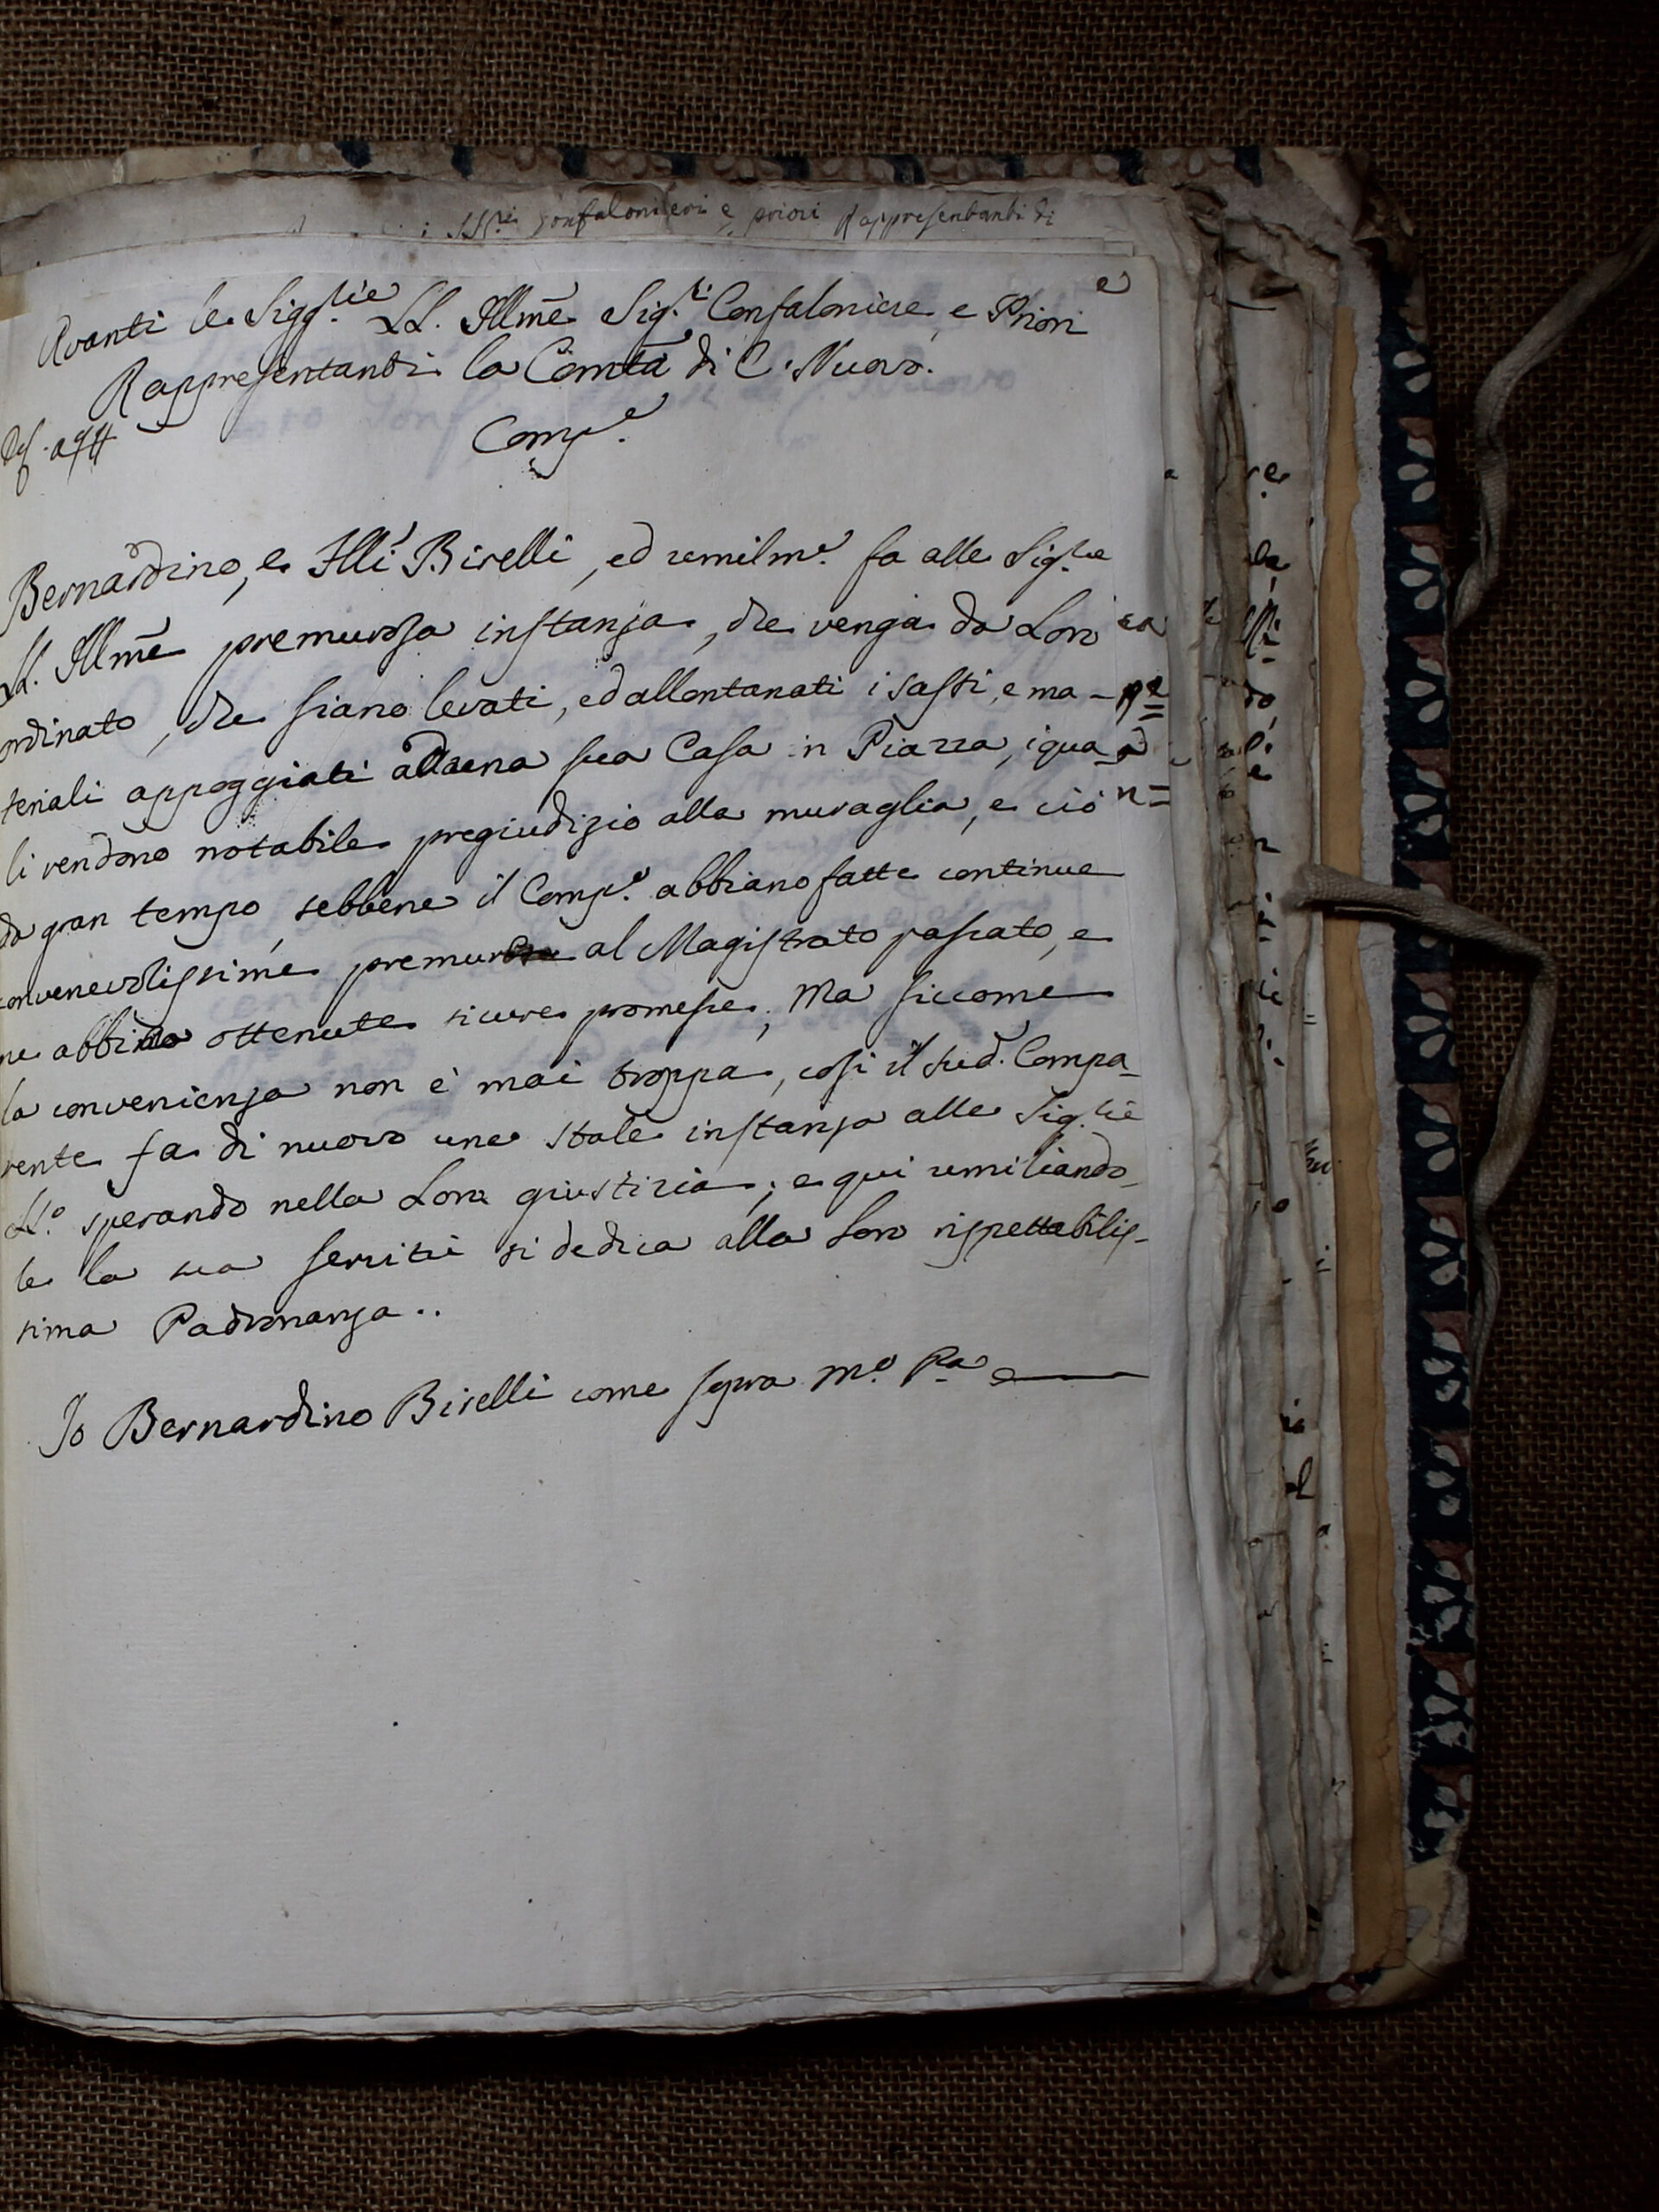 SSri Gonfalonieri e priori Rappresentanti di
Avanti le Sigg.rie LL. Illmē Sig.ri Confaloniere, e Priori
Rappresentanti la Comtà di C. Nuovo.
Comp.e
Bernardino, e Flli Birelli, ed umilm.e fa alle Sig.rie
LL. Illmē premurosa instanza, che venga da Loro
ordinato, che siano levati, ed allontanati i sassi, e ma-
teriali appoggiati ad una sua Casa in Piazza, i qua-
li rendono notabile pregiudizio alla muraglia, e ciò
da gran tempo, sebbene il Comp.e abbiano fatte continue
convenevolissime premure al Magistrato passato, e
ne abbia ottenute sicure promesse; Ma siccome
la convenienza non è mai troppa, così il sud.o Compa-
rente fa di nuovo una stale instanza alle Sig.rie
LL.o sperando nella Loro giustizia; e qui umiliando-
le la sua servitù si dedica alla Loro rispettabilis-
sima Padronanza..
Io Bernardino Birelli come sopra m.o p.a